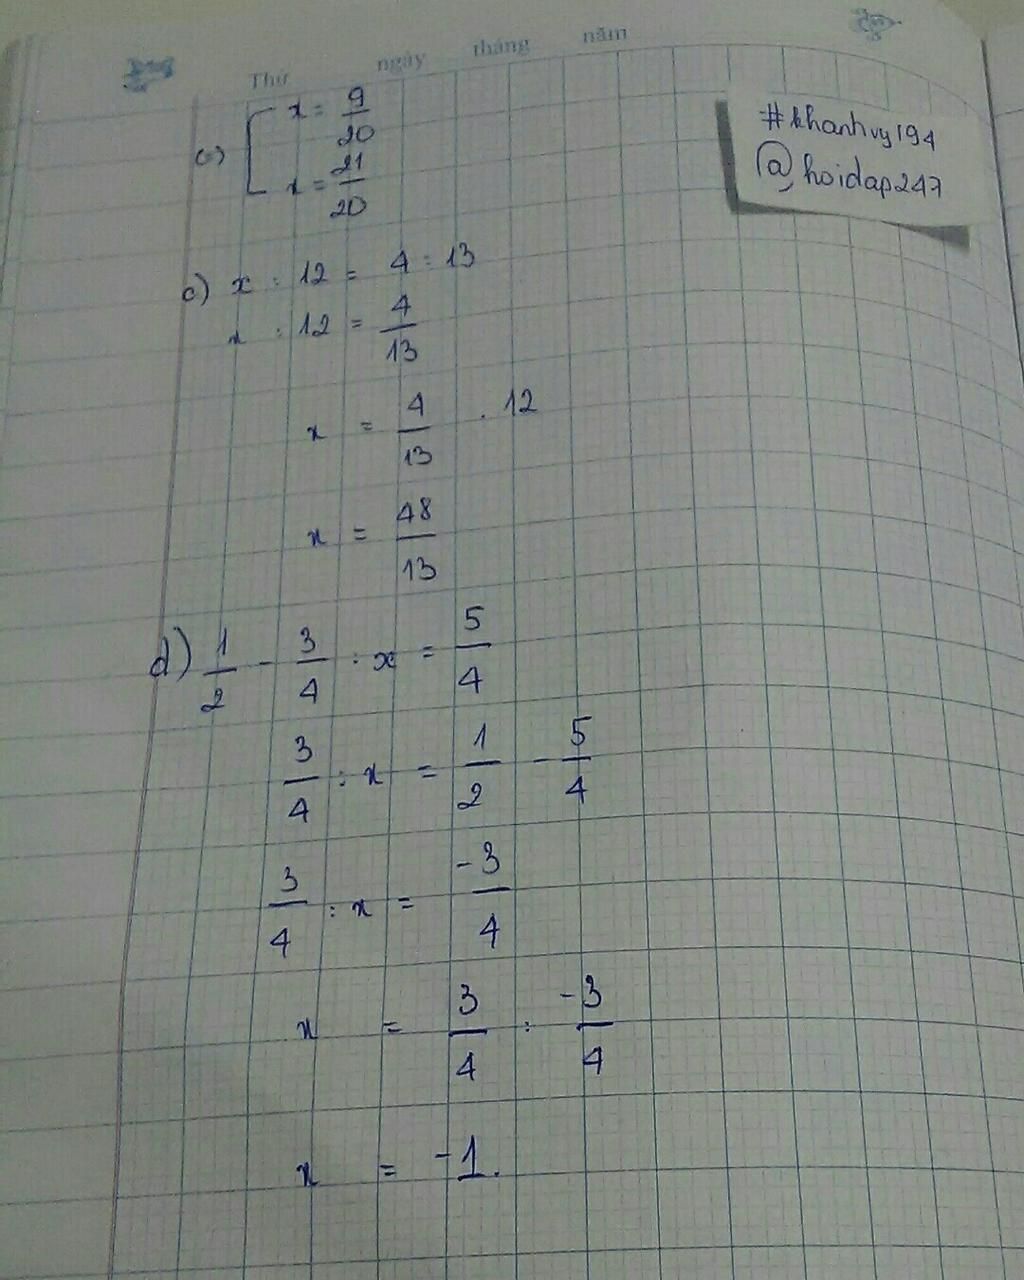 Thứ ngày tháng năm
#khanhvy194
@hoidap247
(=) [ x = 9/20
x = 21/20
c) x : 12 = 4 : 13
x : 12 = 4/13
x = 4/13 . 12
x = 48/13
d) 1/2 - 3/4 : x = 5/4
3/4 : x = 1/2 - 5/4
3/4 : x = -3/4
x = 3/4 : -3/4
x = -1.